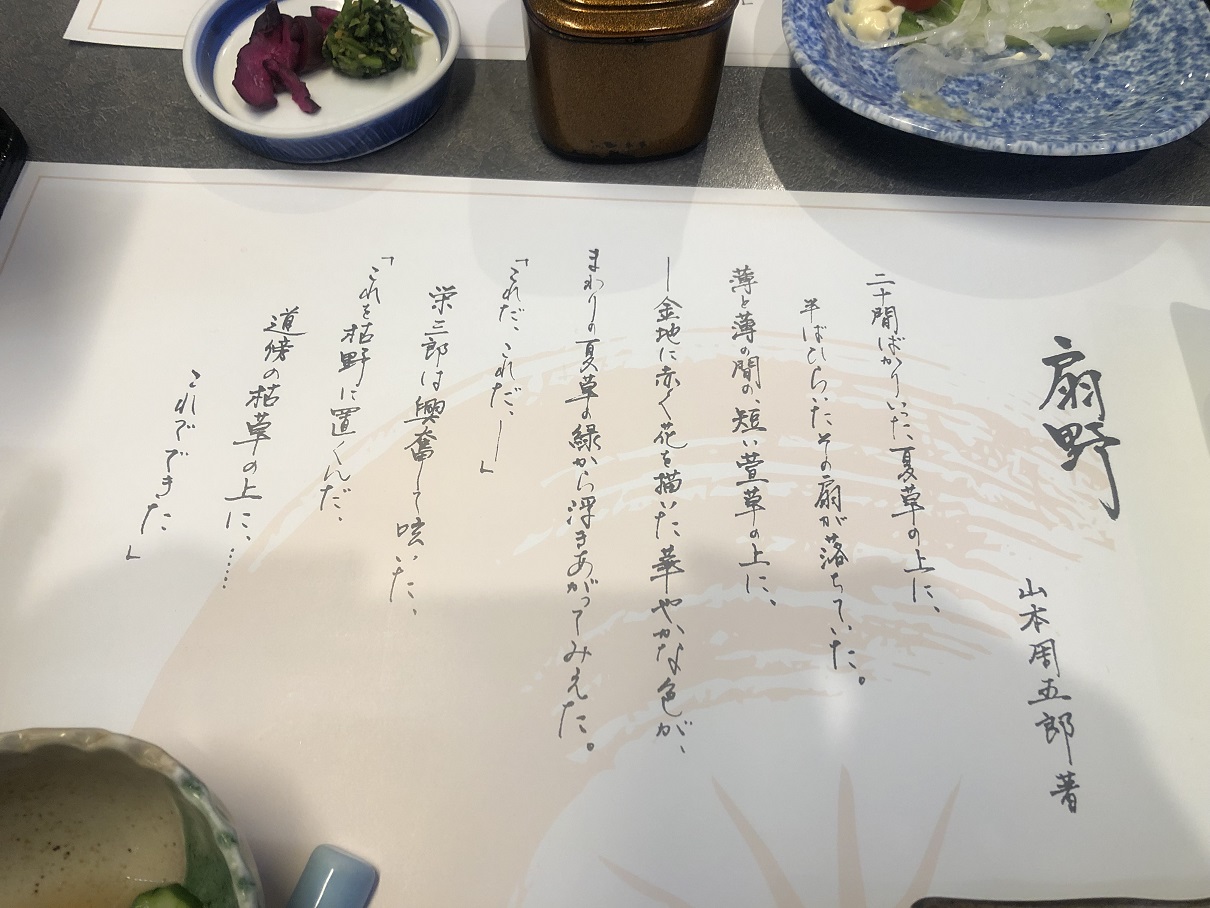 扇野
山本周五郎 著
二十間ばかりいった、夏草の上に、
半ばひらいたその扇が落ちていた。
薄と薄の間の、短い萱草の上に、
―金地に赤く花を描いた華やかな色が、
まわりの夏草の緑から浮きあがってみえた。
「これだ、これだ、―」
栄三郎は興奮して呟いた、
「これを枯野に置くんだ、
道傍の枯草の上に、……
これでできた」